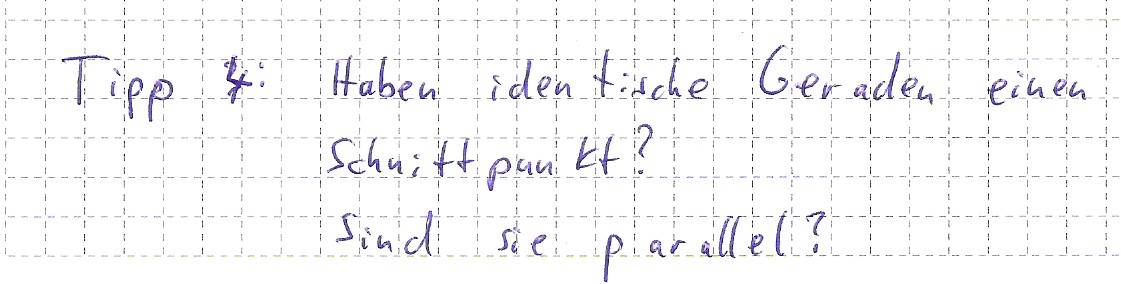 Tipp 4: Haben identische Geraden einen
Schnittpunkt?
Sind sie parallel?